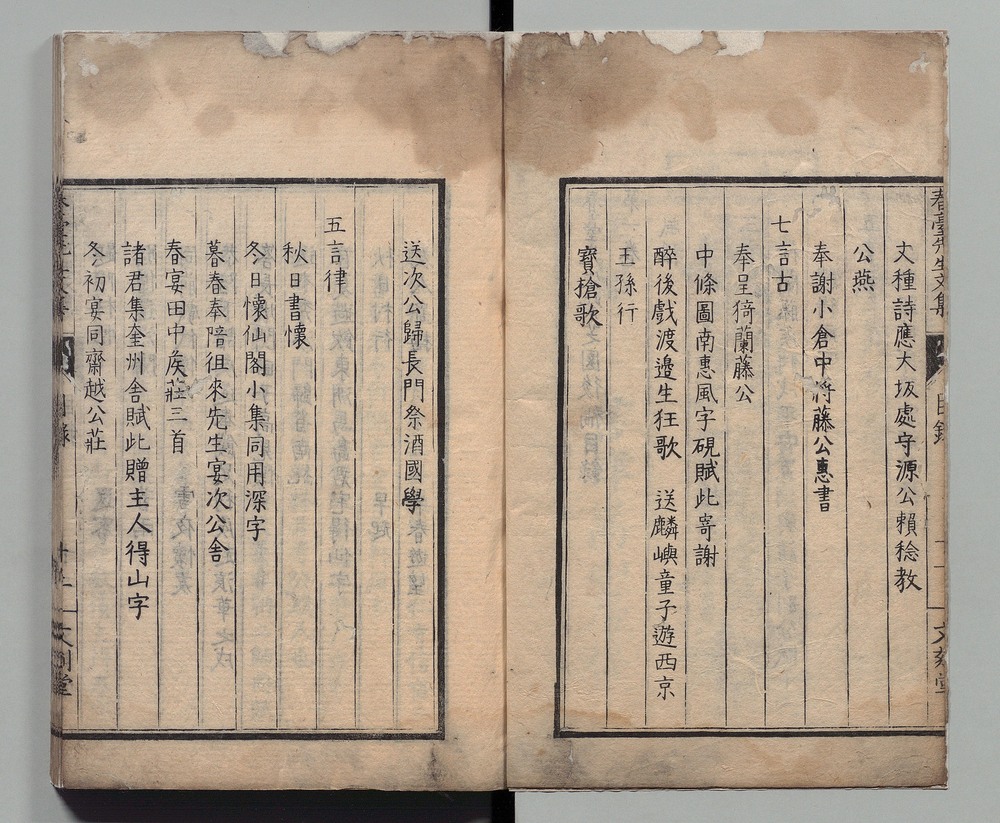 春臺先生文集
目錄
文種詩應大坂處守源公賴稔教
公燕
奉謝小倉中將藤公惠書
七言古
奉呈猗蘭藤公
中條圖南惠風字硯賦此寄謝
醉後戲渡邉生狂歌　送麟嶼童子遊西京
王孫行
寳搶歌
送次公歸長門祭酒國學
五言律
秋日書懷
冬日懷仙閣小集同用深字
暮春奉陪徂來先生宴次公舍
春宴田中矦莊三首
諸君集奎州舍賦此贈主人得山字
冬初宴同齋越公莊